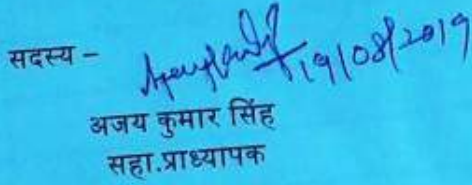 सदस्य – 19/08/2019
अजय कुमार सिंह
सहा.प्राध्यापक